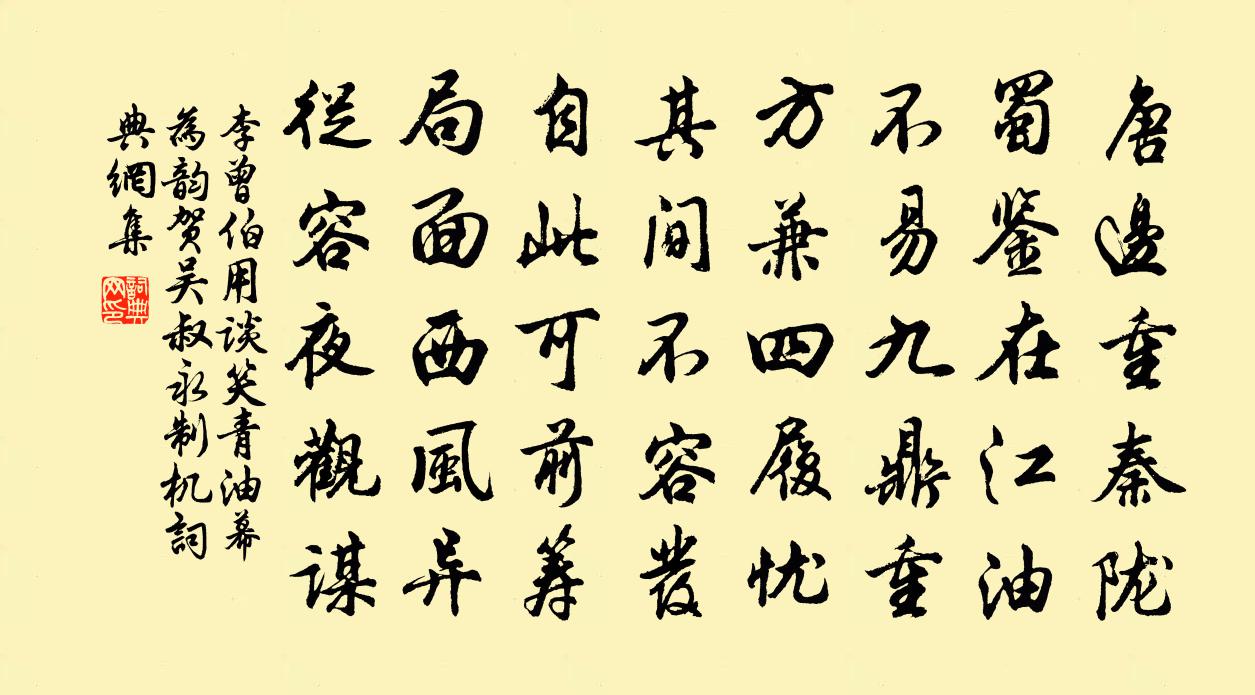 唐邊重秦陇
蜀鉴在江油
不易九鼎重
方兼四履忧
其间不容發
自此可前筹
局面西風异
従容夜觀謀
李曾伯用谈笑青油幕
為韵贺吴叔永制机詞
典網集
詞典網印